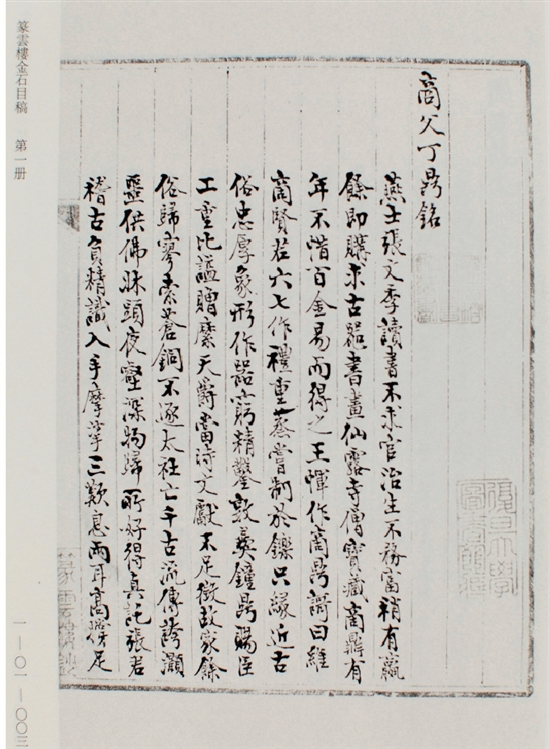 商父丁鼎銘
燕士張文季讀書不求官治生不務富稍有贏
餘即購求古器書畫仙露寺僧寶藏商鼎有
年不惜百金易而得之王惲作商鼎謌曰維
商賢君六七作禮重蒸嘗制於鑠只緣近古
俗忠厚象形作器窮精鑿敦彝鐘鼎賜臣
工重比謚贈縻天爵當詩文獻不足徵故家餘
俗歸寥索蒼銅不逐太社亡千古流傳誇灝
噩供佛牀頭夜壑深物歸所好得真託張君
稽古負精識入手摩挲三歎息兩耳高撐足
復旦大學圖書館藏
篆雲樓金石目稿 第一册
一—〇一—〇〇三